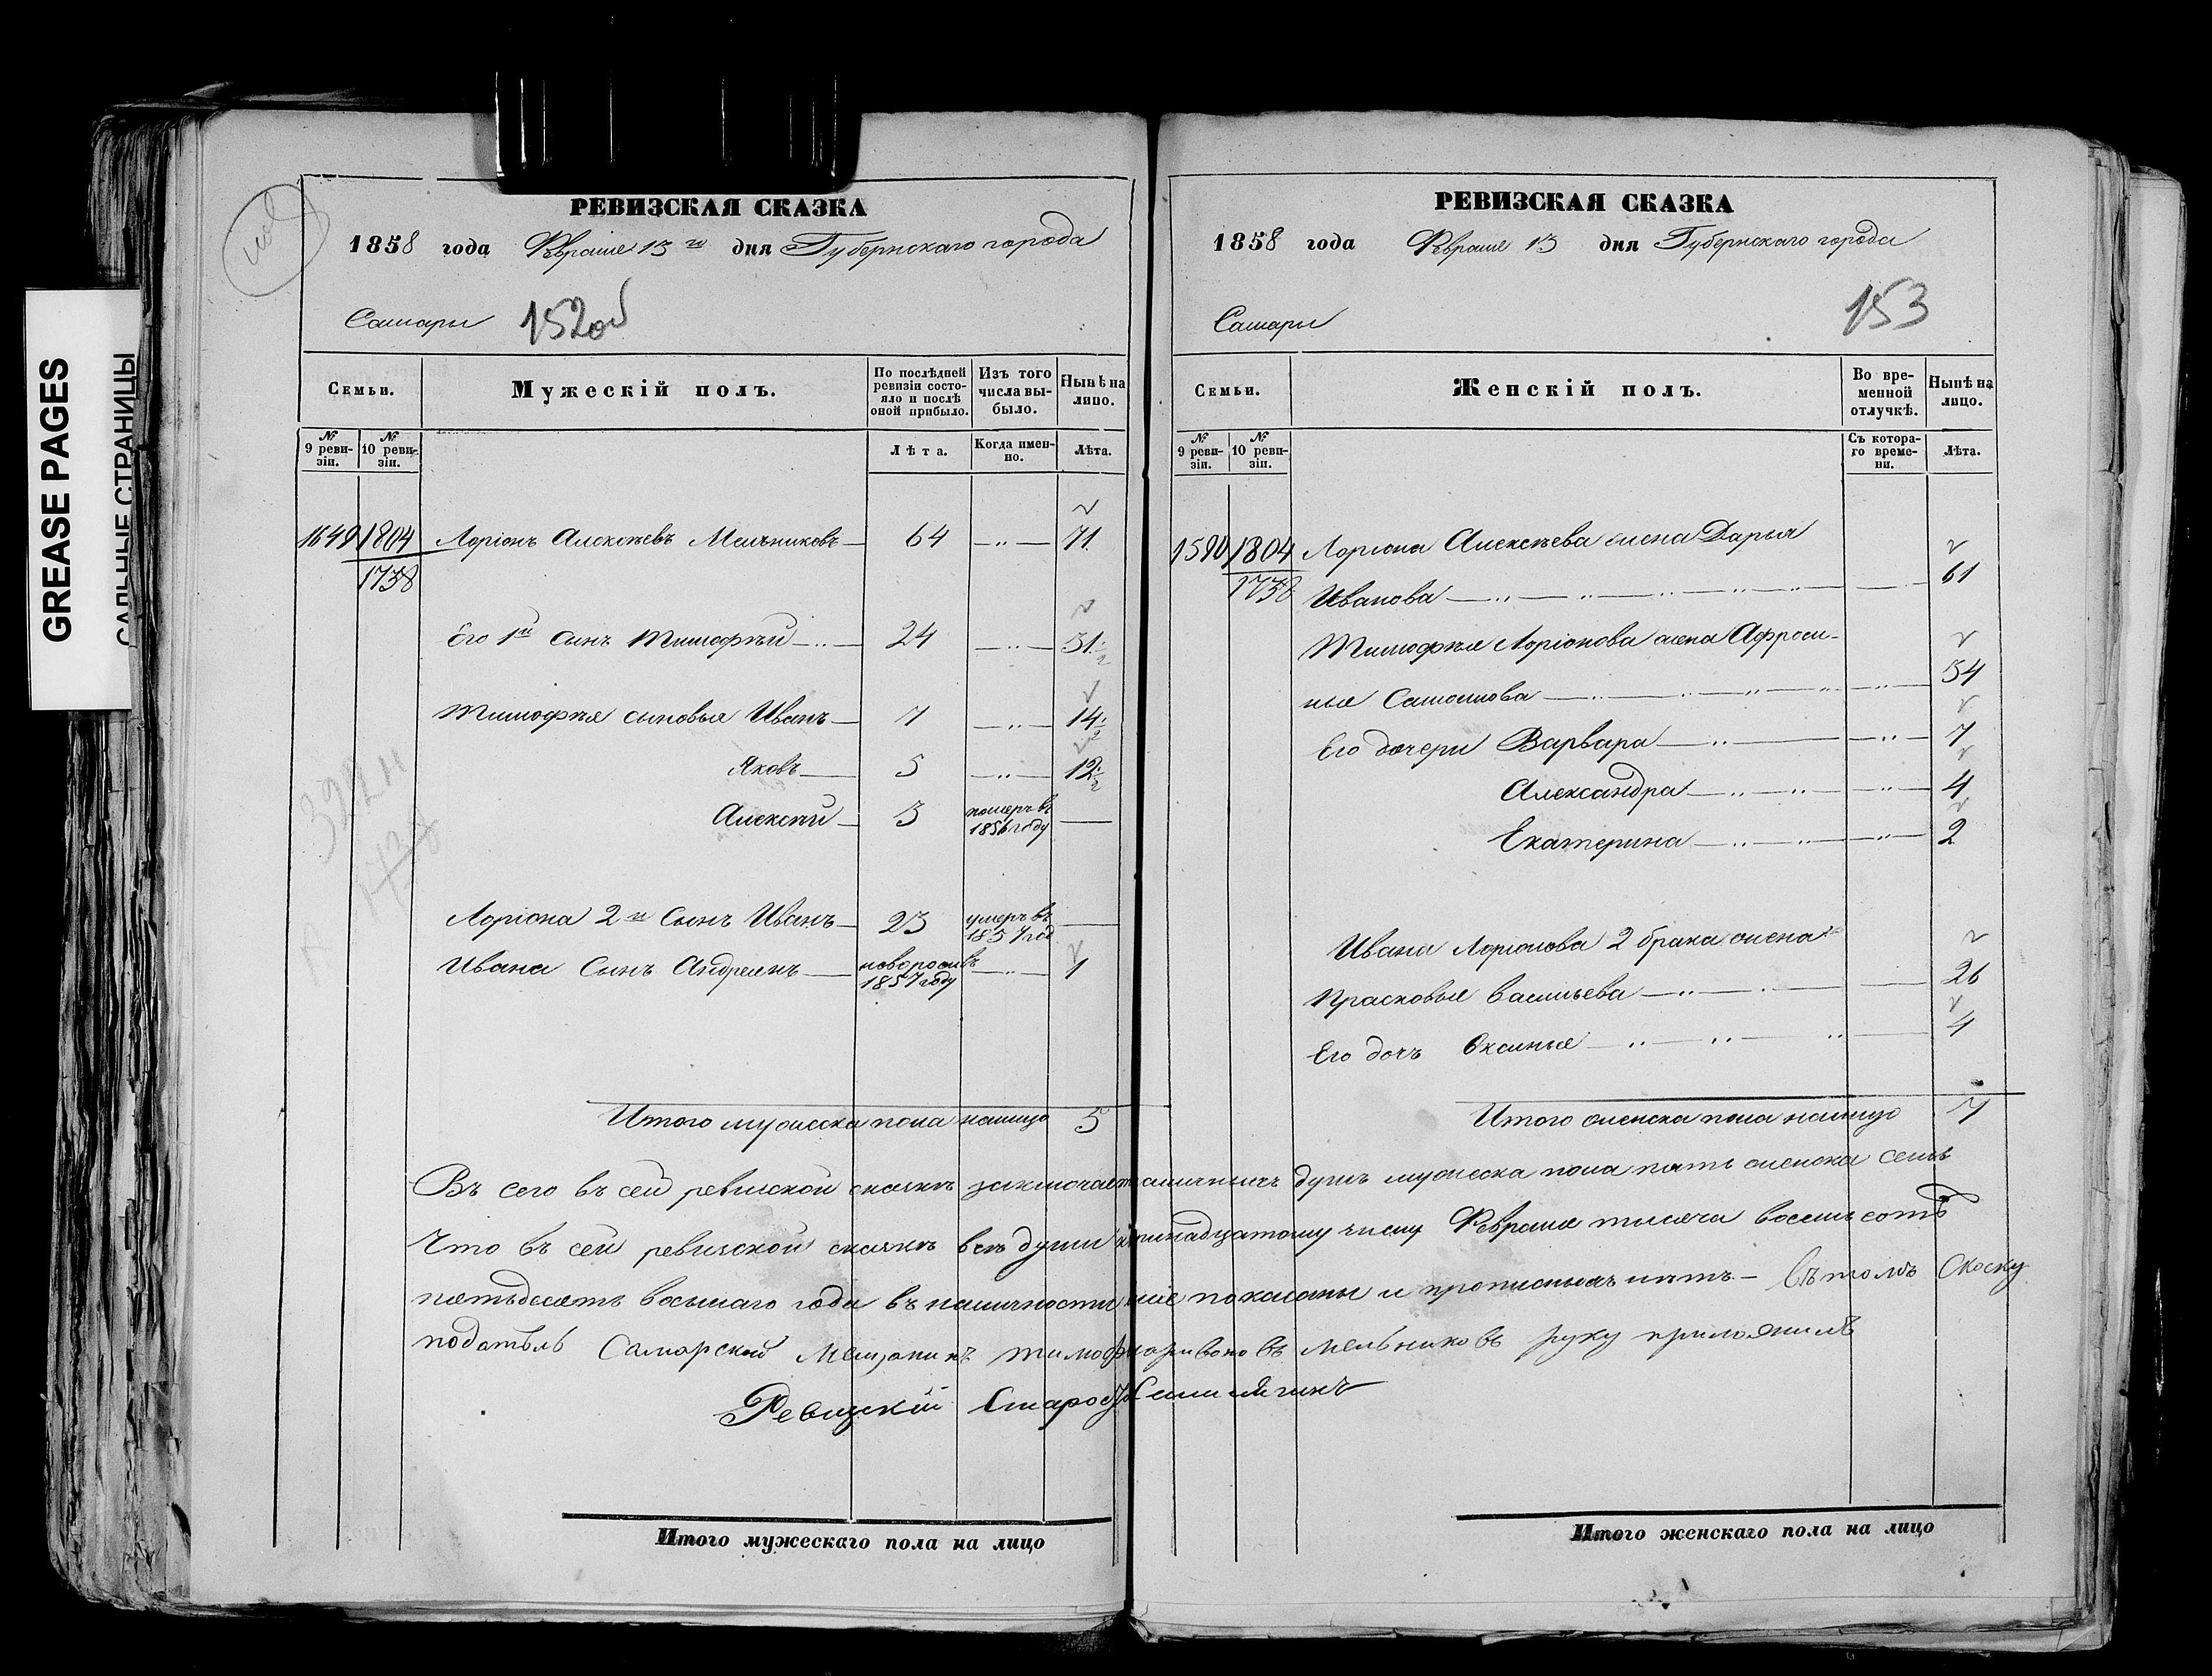 GREASE PAGES
САЛЬНЫЕ СТРАНИЦЫ
РЕВИЗСКАЯ СКАЗКА
1858 года Февраля 13го дня Губернскаго города
Самары 152об
Семьи.
Мужескій полъ.
По послѣдней ревизіи состояло и послѣ оной прибыло.
Изъ того числа выбыло.
Нынѣ на лицо.
№ 9 ревизіи.
№ 10 ревизіи.
Лѣта.
Когда именно.
Лѣта.
1649 1804 Ларіонъ Алексѣевъ Мельниковъ 64 71
1738
Его 1й сынъ Тимофѣй 24 31
Тимофѣя сыновья Иванъ 7 14
Яковъ 5 12
Алексѣй 3 померъ въ 1856 году
Ларіона 2й Сынъ Иванъ 23 умеръ въ 1857 год
Ивана Сынъ Андреянъ новорож въ 1857 году 1
Итого мужеска пола налицо 5
РЕВИЗСКАЯ СКАЗКА
1858 года Февраля 13 дня Губернскаго города
Самары 153
Семьи.
Женскій полъ.
Во временной отлучкѣ.
Нынѣ на лицо.
№ 9 ревизіи.
№ 10 ревизіи.
Съ котораго времени.
Лѣта.
1590 1804 Ларіона Алексѣева жена Дарья
1738 Иванова 61
Тимофѣя Ларіонова жена Афроси-
нья Самойлова 34
Его дочери Варвара 7
Александра 4
Екатерина 2
Ивана Ларіонова 2 брака жена
Прасковья Васильева 26
Его дочь Ксинья 4
Итого женска пола налицо 7
Въ сего въ сей ревизской сказкѣ заключается наличныхъ душъ мужеска пола пять женска семь
Что въ сей ревизской сказкѣ всѣ души к тринадцатому числу Февраля тысяча восемьсотъ
пятьдесятъ восьмаго года въ наличности показаны и прописныхъ нѣтъ – Въ томъ Скаску
податѣль Самарской Мещанинъ тимофѣ ларивоновъ мельниковъ руку приложилъ
Ревизскій Староста
Итого мужескаго пола на лицо
Итого женскаго пола на лицо